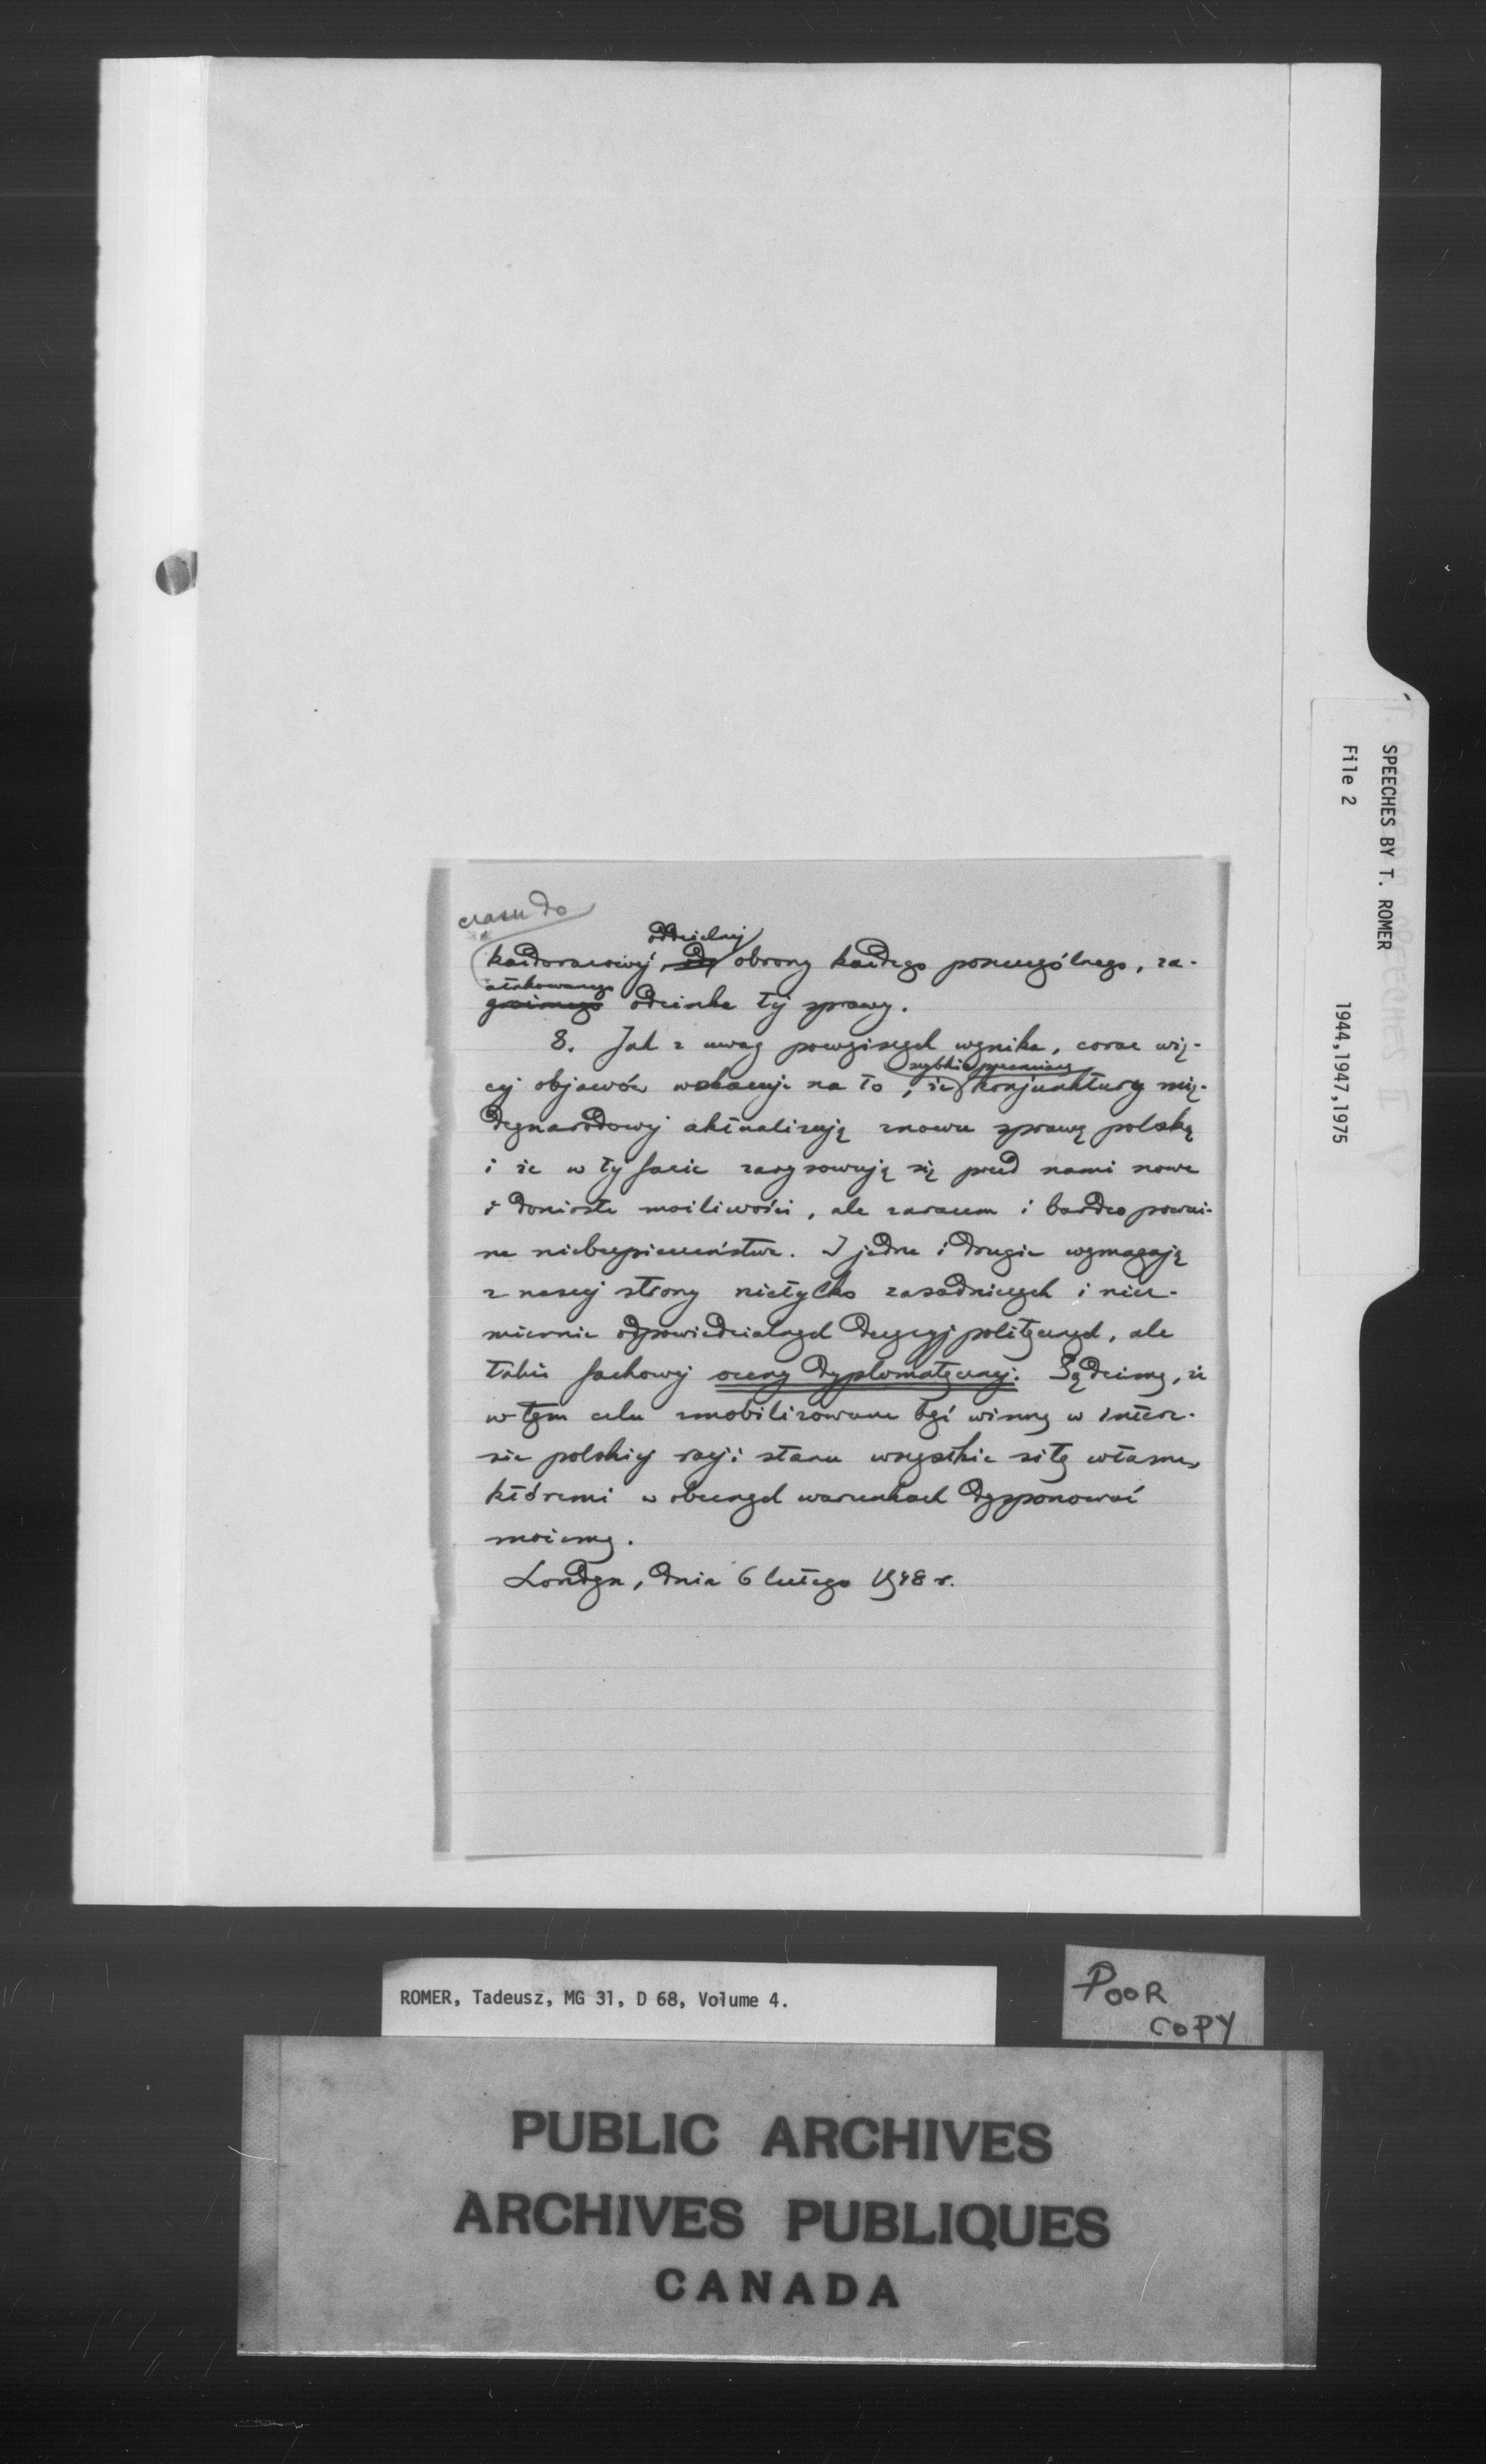 czasu do
oddzielnej
każdorazowej, do obrony każdego poszczególnego, za-
atakowanego
odcinka tej sprawy.
8. Jak z uwag powyższych wynika, coraz wię-
szybkie przemiany
cej objawów wskazuje na to, że konjunktury mię-
dzynarodowej aktualizują znowu sprawę polską
i że w tej fazie zarysowują się przed nami nowe
i doniosłe możliwości, ale zarazem i bardzo poważ-
ne niebezpieczeństwa. I jedne i drugie wymagają
z naszej strony nietylko zasadniczych i niez-
miernie odpowiedzialnych decyzyj politycznych, ale
także fachowej oceny dyplomatycznej. Sądzimy, że
w tym celu zmobilizowane być winny w intere-
sie polskiej racji stanu wszystkie siły własne,
któremi w obecnych warunkach dysponować
możemy.
Londyn, dnia 6 lutego 1948 r.
SPEECHES BY T. ROMER
File 2
1944,1947,1975
ROMER, Tadeusz, MG 31, D 68, Volume 4.
POOR
COPY
PUBLIC ARCHIVES
ARCHIVES PUBLIQUES
CANADA